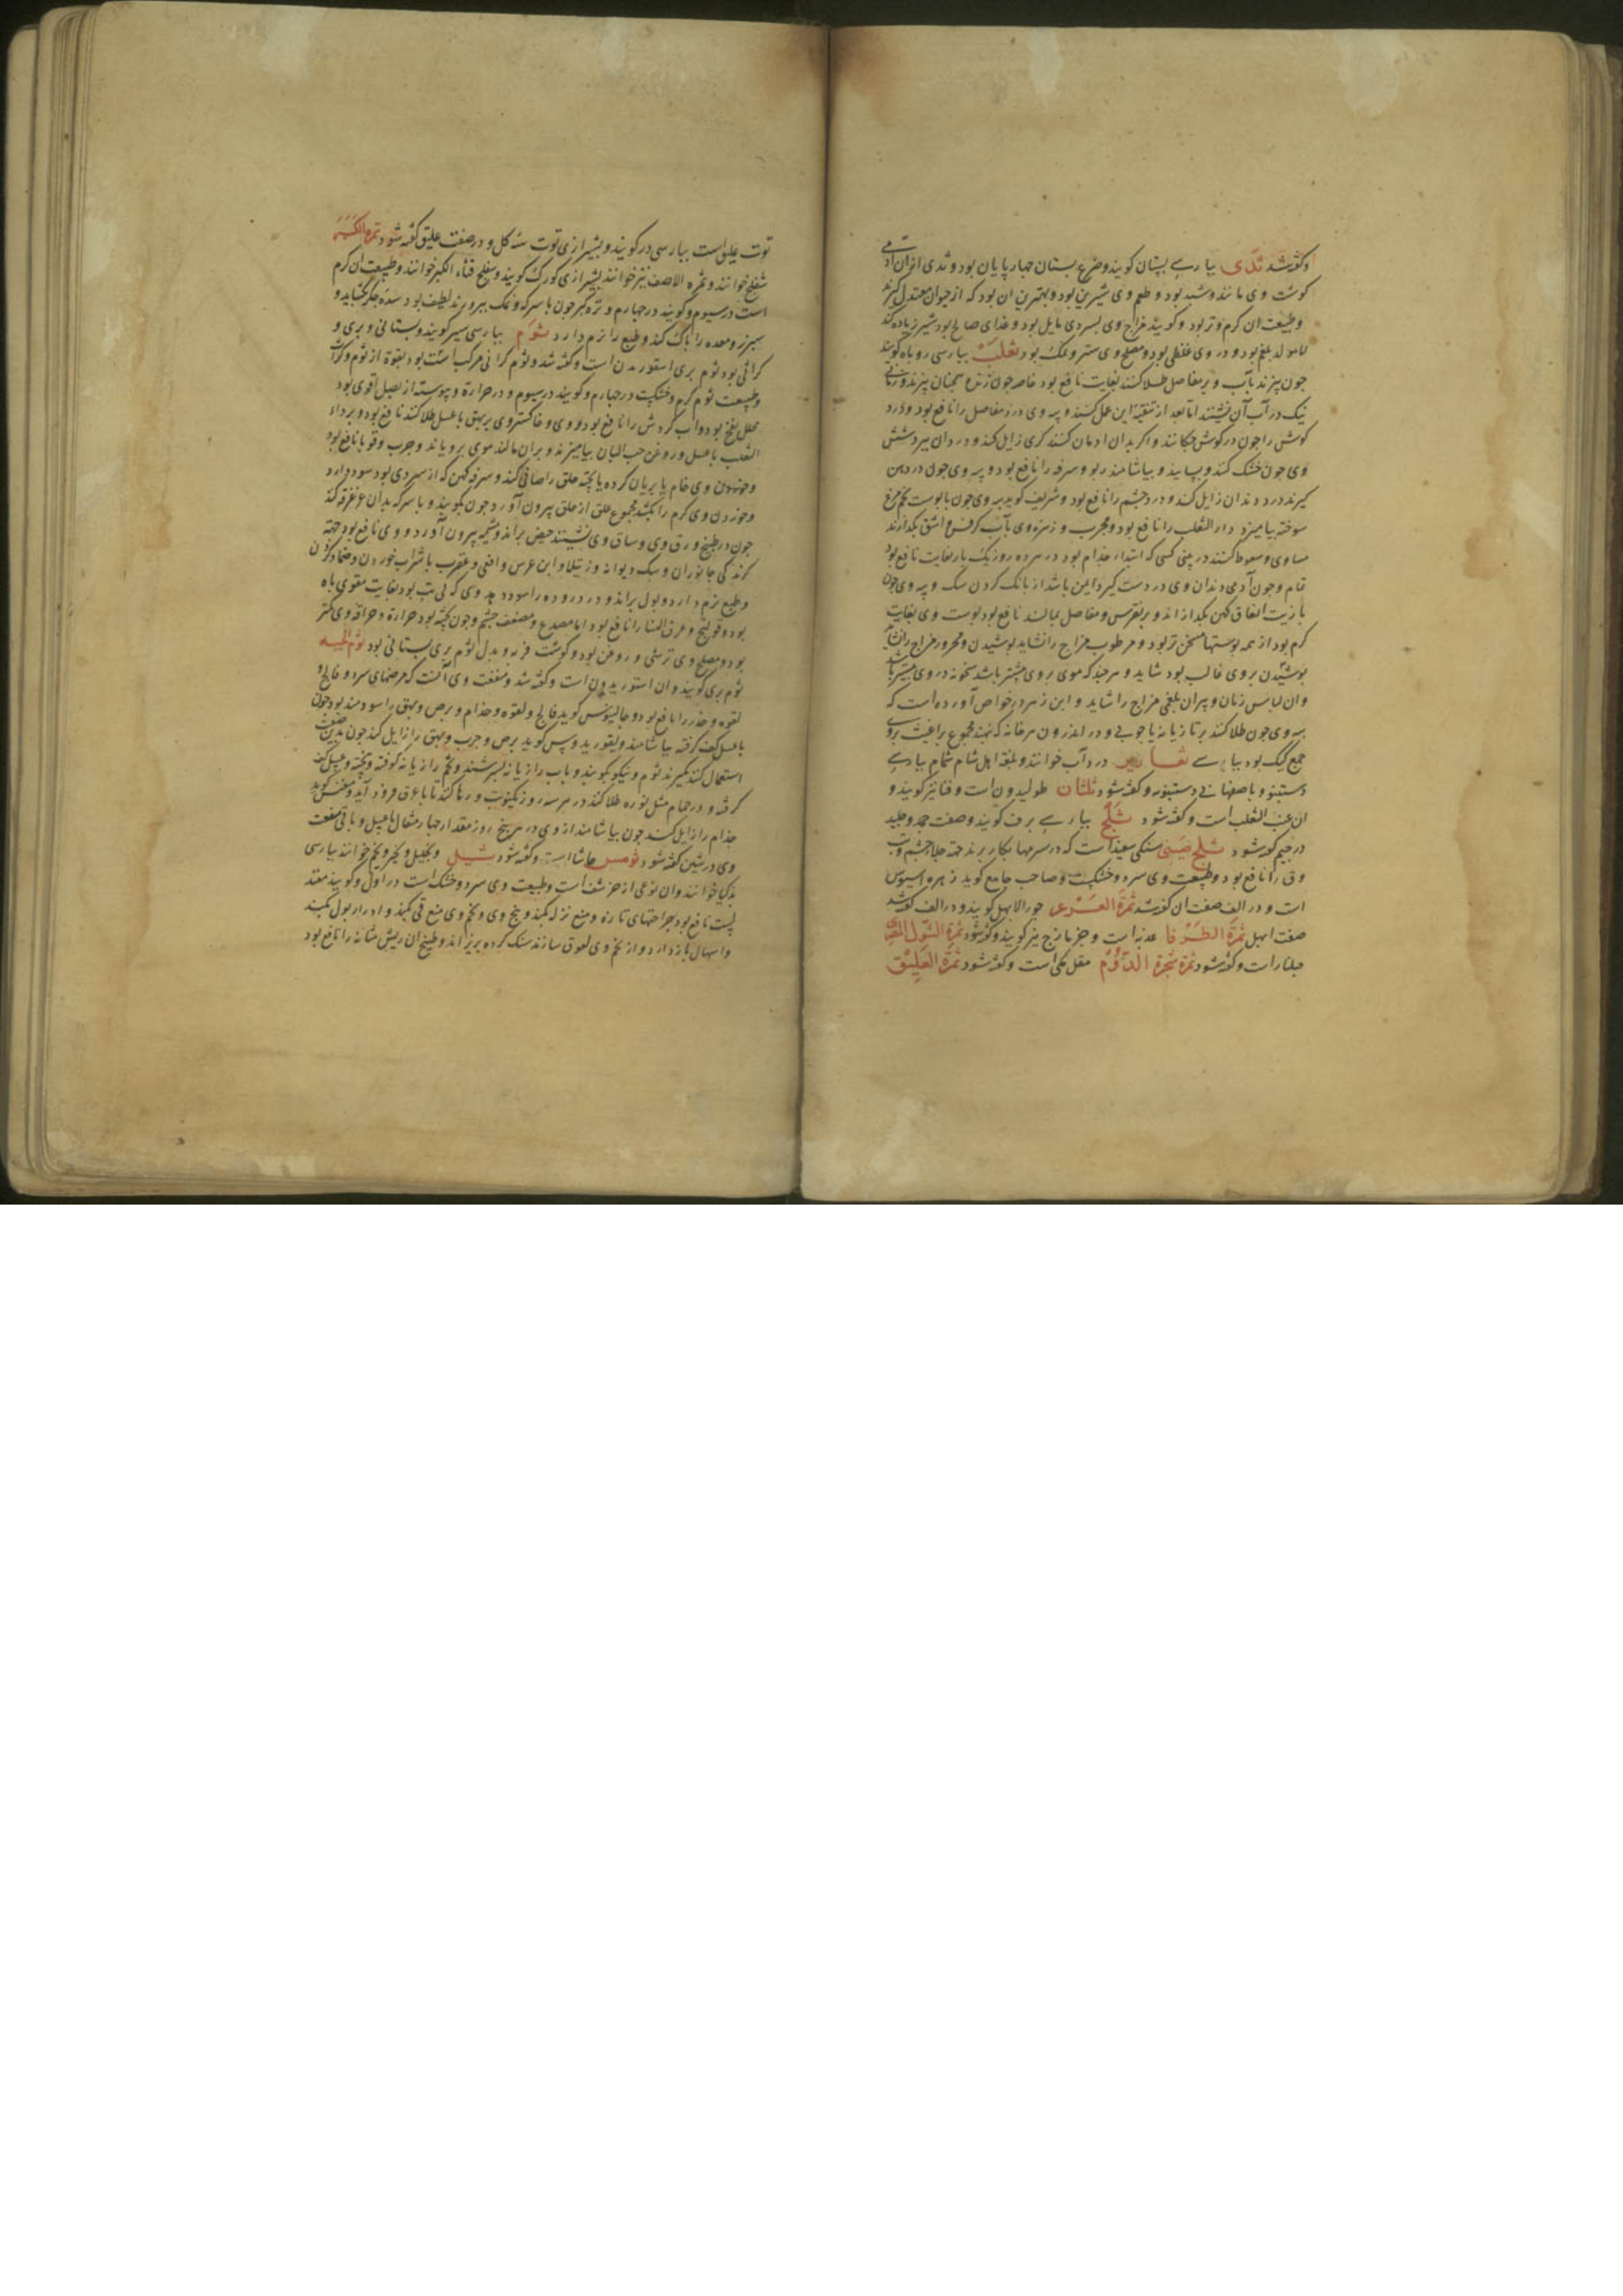 وکفته شد ثدی بپارسی پستان کویند و ضرع پستان چهارپایان بود و ثدی از ان آدمی
کوشت وی مانند و شبه بود و طعم وی شیرین بود و بهترین ان بود که از حیوان معتدل کیرند
و طبیعت ان کرم و تر بود و کویند مزاج وی بسردی مایل بود و غذای صالح بود شیر زیاده کند
اما مولد بلغم بود و در وی غلظی بود و مصلح وی ستر و نمک بود ثعلب بپارسی روباه کویند
چون بپزند بآب و بر مفاصل طلا کنند بغایت نافع بود خاصه چون زنده همچنان بپزند و زمانی
نیک در آب آن نشینند اما بعد از تنقیه این عمل کنند و پیه وی درد مفاصل را نافع بود و درد
کوش را چون در کوش چکانند و اکر بدان ادمان کنند کری زایل کند و دردان ببرد شش
وی چون خشک کنند و بسایند و بیاشامند ربو و سرفه را نافع بود و پیه وی چون در دهن
کیرند درد دندان زایل کند و درد چشم را نافع بود و شریف کوید پیه وی چون با پوست تخم مرغ
سوخته بیامیزد داء الثعلب را نافع بود و مجرب و زهره وی بآب کرفس و اشق بکدازند
مساوی و سعوط کنند در بینی کسی که ابتداء جذام بود در هر ده روز یک بار بغایت نافع بود
تمام و چون آدمی دندان وی در دست کیرد ایمن باشد از بانک کردن سک و پیه وی چون
با زیت انفاق کهن بکدازاند و بر نقرس و مفاصل بمالند نافع بود پوست وی بغایت
کرم بود از همه پوستها مسخن تر بود و مرطوب مزاج را نشاید پوشیدن و محرور مزاج را نشاید
پوشیدن بروی غالب بود شاید و هرچند که موی بروی بیشتر باشد سخونه در وی بیشتر باشد
وان لباس زنان و پیران بلغمی مزاج را شاید و ابن زهر در خواص آورده است که
پیه وی چون طلا کنند بر تازیانه یا چوبی و در اندرون هر خانه که نهند مجموع براغیث بروی
جمع کیک بود بپارسی ثعاریر در دآب خوانند و بلغة اهل شام شمام بپارسی
دستنبو و باصفهانی دستنبویه و کفته شود ثلثان طولیدون است و فنا نیز کویند و
ان عنب الثعلب است و کفته شود ثلج بپارسی برف کویند و صفت جمد و جلید
در جیم کفته شود ثلج صینی سنکی سفید است که در سرمها بکار برند جهة جلاء چشم و تب
وق را نافع بود و طبیعت وی سرد و خشکست و صاحب جامع کوید زهره اسیوس
است و در الف صفت ان کفته شد ثمرة العرعر جوز الابهل کویند و در الف کفته شد
صفت ابهل ثمرة الطرفا عذبه است و جزمازج نیز کویند و کفته شود ثمرة الشول المصری
جلنار است و کفته شود ثمرة شجرة الدوم مقل مکی است و کفته شود ثمرة العلیق
توت علیق است بپارسی در کویند و بشیرازی توت سه کل و در صفت علیق کفته شود ثمرة الکبر
شفلح خوانند و ثمره الاصف نیز خوانند بشیرازی کورک کویند و شفلح قثاء الکبر خوانند و طبیعت ان کرم
است در سیوم و کویند در چهارم و تره کبر چون با سرکه و نمک بپرورند لطیف بود سدة جکر بکشاید و
سپرز و معده را پاک کند و طبع را نرم دارد ثوم بپارسی سیر کویند و بستانی و بری و
کراثی بود ثوم بری اسقوردیون است و کفته شد و ثوم کراثی مرکب است بود بقوة از ثوم و کراث
و طبیعت ثوم کرم و خشکست در چهارم و کویند در سیوم و در حرارة و یبوسة از بصل اقوی بود
محلل نفخ بود و آب کردش را نافع بود و وی و خاکستر وی بر بهق با عسل طلا کنند نافع بود و بر داء
الثعلب با عسل و روغن حب البان بیامیزند و بران مالند موی برویاند و جرب و قوبا نافع بود
وخوردن وی خام یا بریان کرده یا پخته حلق را صافی کند و سرفه کهن که از سردی بود سود دارد
وخوردن وی کرم را بکشد مجموع علق از حلق بیرون آورد چون بکوبند و با سرکه بدان غرغره کنند
چون در طبیخ ورق وی و ساق وی نشینند حیض براند و مشیمه بیرون آورد و وی نافع بود جهة
کزندکی جانوران و سک دیوانه و رتیلا و ابن عرس و افعی و عقرب با شراب خوردن و ضماد کردن
وطبع نرم دارد و بول براند و درد روده را سود دهد وی که لی تب بود بغایت مقوی باه
بود و قولنج و عرق النسا را نافع بود اما مصدع و مضعف چشم و چون پخته بود حرارة و حرافة وی کمتر
بود و مصلح وی ترشی و روغن بود و کوشت فربه و بدل ثوم بری بستانی بود ثوم الحیه
ثوم بری کویند و ان اسقوردیون است و کفته شد و منفعت وی آنست که مرضهای سرد و فالج و
لقوه و خدر را نافع بود و جالینوس کوید فالج و لقوه و جذام و برص و بهق را سودمند بود چون
با عسل کف کرفته بیاشامند و دیسقوریدوس کوید برص و جرب و بهق را زایل کند چون بدین صفت
استعمال کنند بکیرند ثوم و نیکو بکوبند و باب رازیانه بسرشند و تخم رازیانه کوفته و بیخته و عسل کف
کرفته و در حمام مثل نوره طلا کنند در هر سه روز یکنوبت و رها کنند تا با عرق فرود آید و مفلس کوید
جذام را زایل کند چون بیاشامند از وی در پنج روز مقدار چهار مثقال با عسل و باقی منفعت
وی در شین کفته شود ثومس حاشا است و کفته شود ثیل و نجیل و نجیر و نجم خوانند بپارسی
بدکیا خوانند وان نوعی از حرشف است و طبیعت وی سرد و خشک است در اول و کویند معتد
لیست نافع بود جراحتهای تازه و منع نزله بکند و بیخ وی و تخم وی منع قی بکند و ادرار بول بکند
واسهال باز دارد و از تخم وی لعوق سازند سنک کرده بریزاند و طبیخ ان ریش مثانه را نافع بود